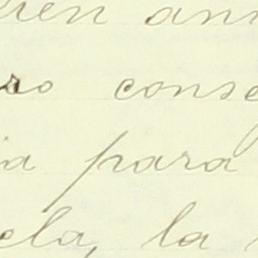 ren an
ro conse
ia para
ela, la